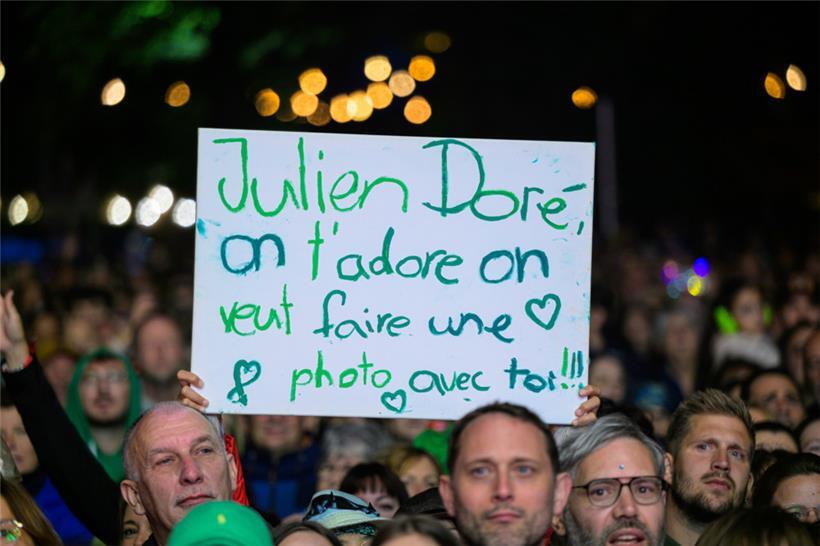 Julien Doré,
on t'adore on
veut faire une ♡
photo avec toi!!!